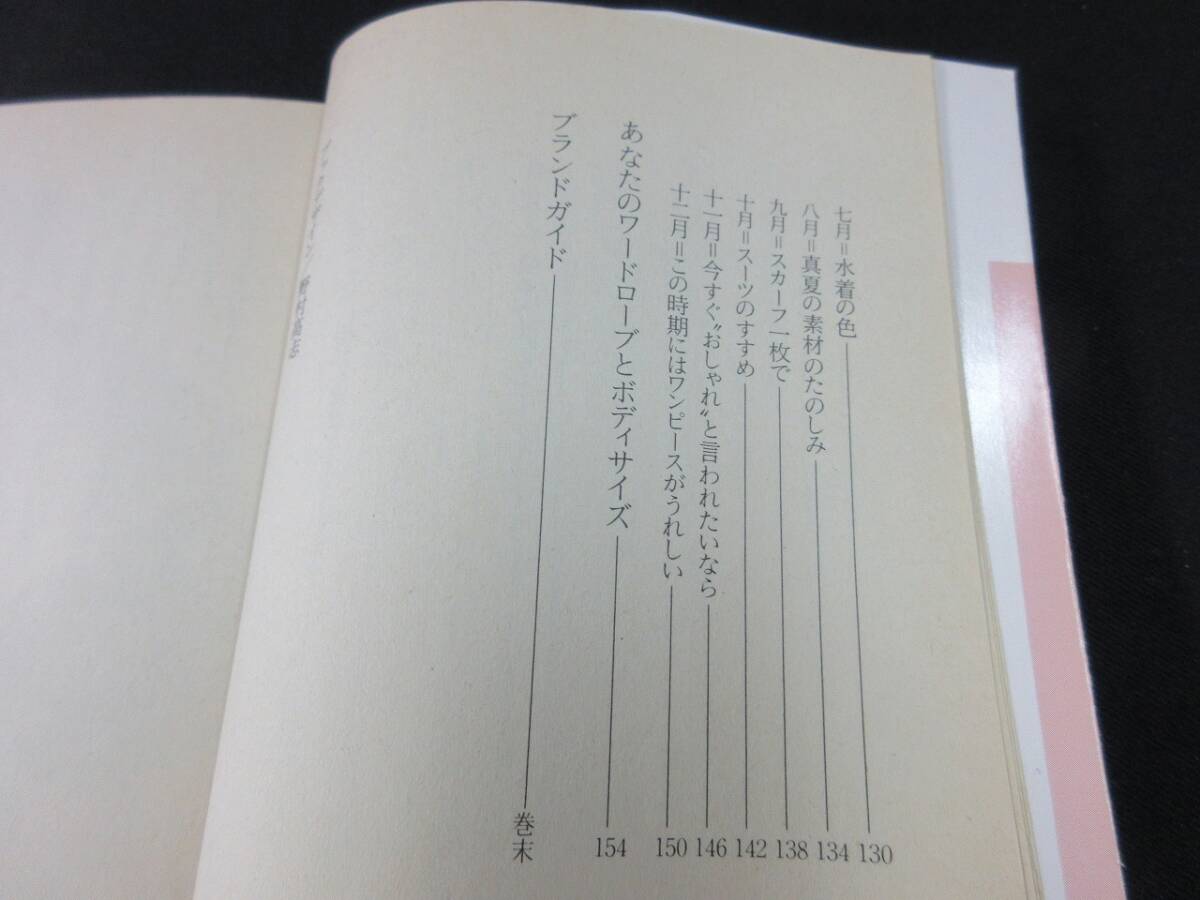 七月＝水着の色 130
八月＝真夏の素材のたのしみ 134
九月＝スカーフ一枚で 138
十月＝スーツのすすめ 142
十一月＝今すぐ〝おしゃれ〟と言われたいなら 146
十二月＝この時期にはワンピースがうれしい 150
あなたのワードローブとボディサイズ 154
ブランドガイド 巻末
野村高志